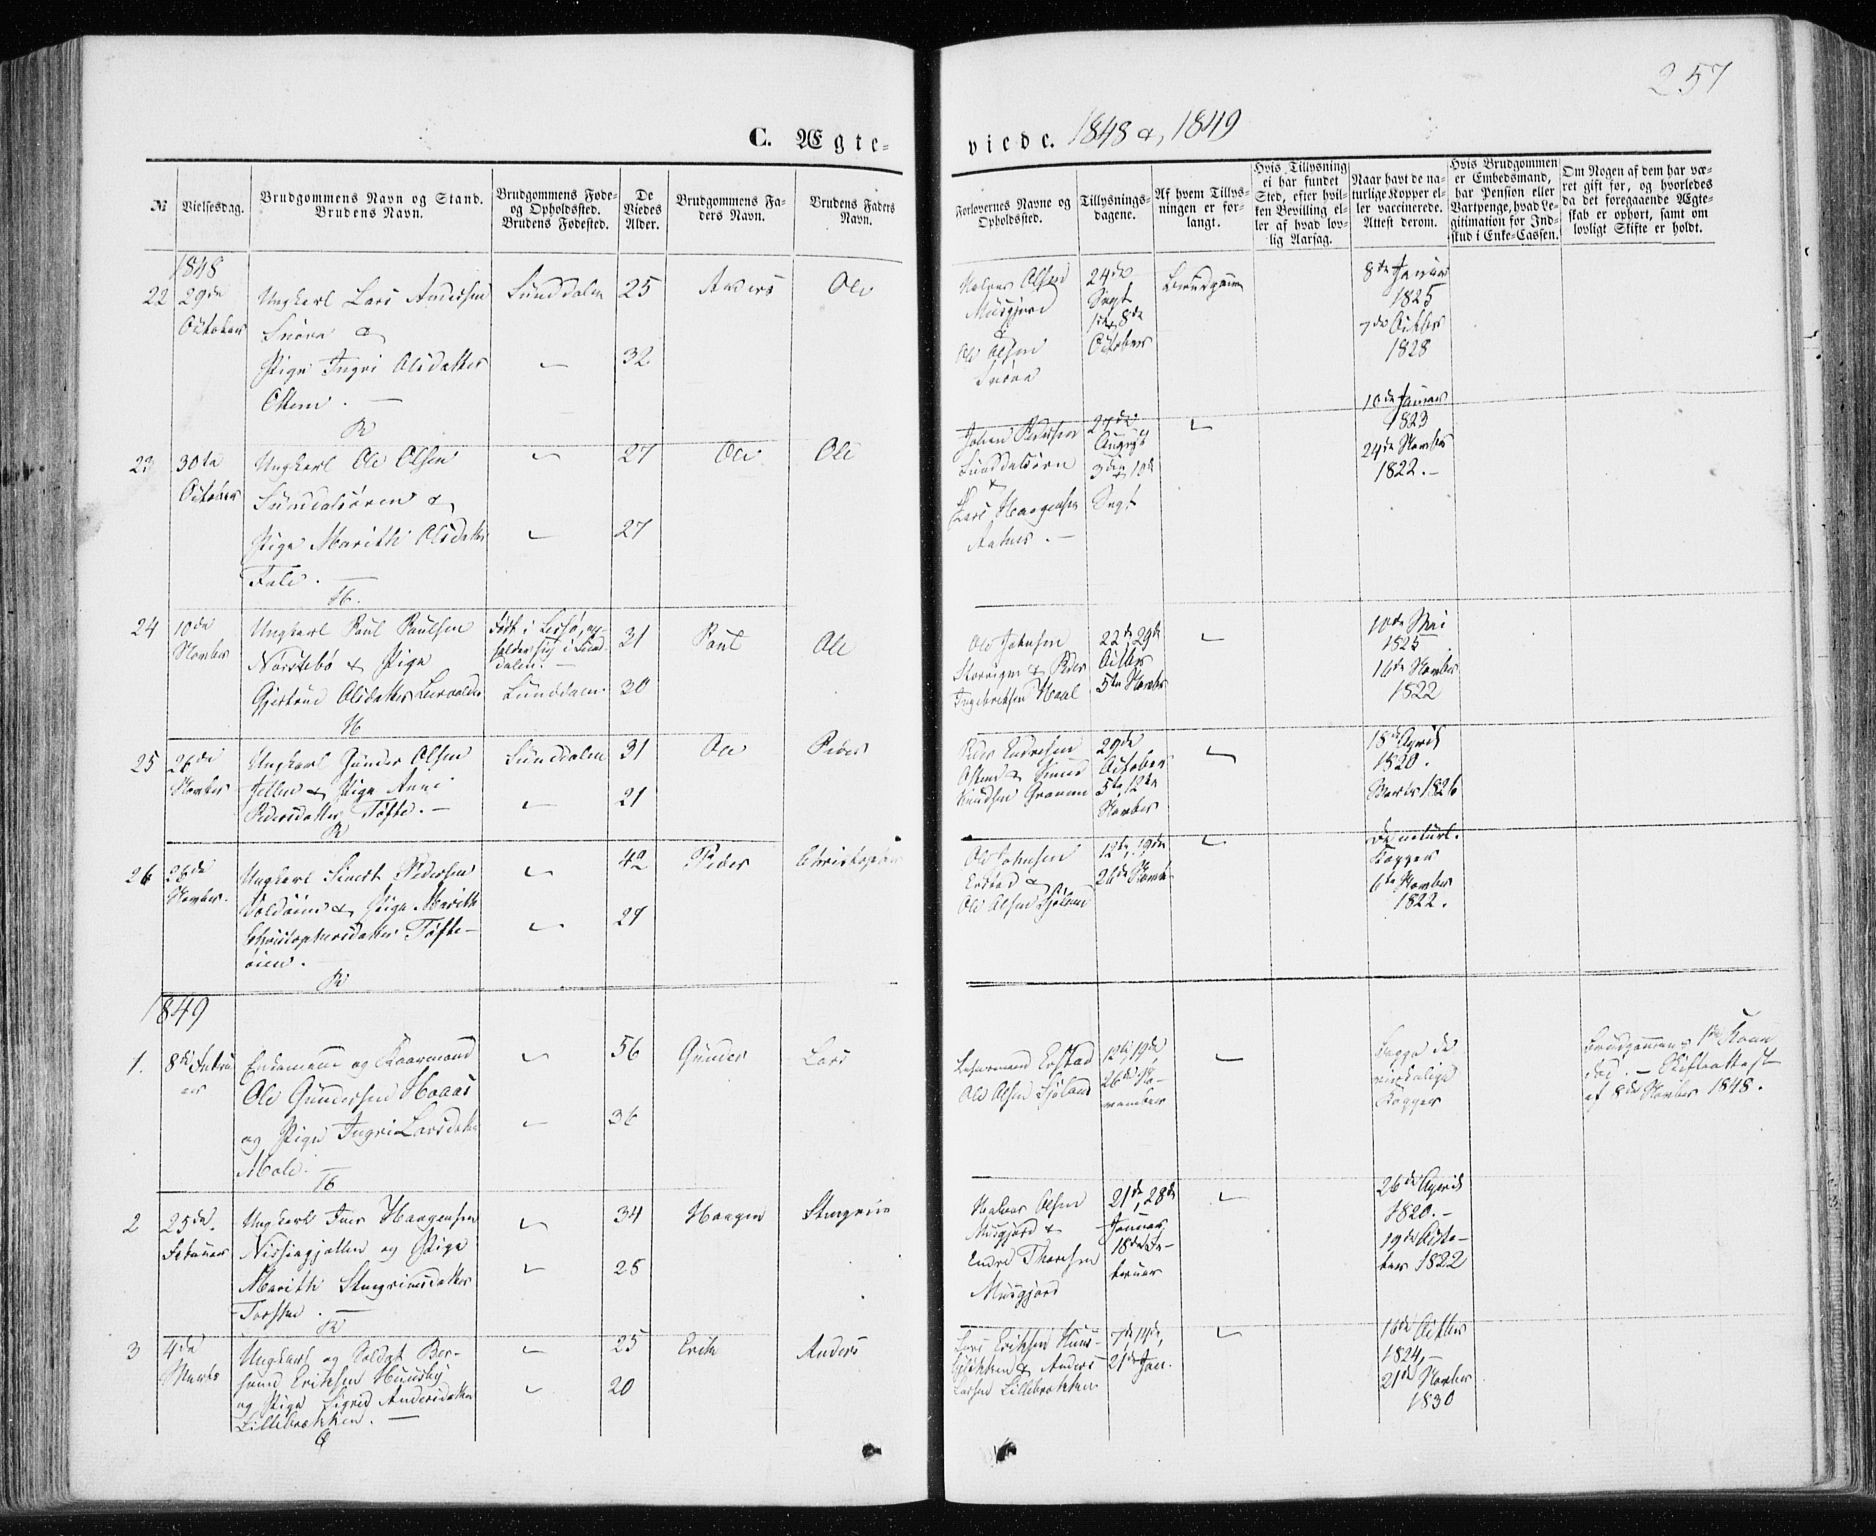 257
C. Ægte-
viede. 1848 &, 1849
№
Vielsesdag.
Brudgommens Navn og Stand.
Brudens Navn.
Brudgommens Føde-
og Opholdssted.
Brudens Fødested.
De
Viedes
Alder.
Brudgommens Fa-
ders Navn.
Brudens Faders
Navn.
Forlovernes Navne og
Opholdssted.
Tillysnings-
dagene.
Af hvem Tillys-
ningen er for-
langt.
Hvis Tillysning
ei har fundet
Sted, efter hvil-
ken Bevilling el-
ler af hvad lov-
lig Aarsag.
Naar havt de na-
turlige Kopper el-
ler vaccinerede.
Attest derom.
Hvis Brudgommen
er Embedsmand,
har Pension eller
Vartpenge, hvad Le-
gitimation for Ind-
skud i Enke-Cassen.
Om Nogen af dem har væ-
ret gift før, og hvorledes
da det foregaaende Ægte-
skab er ophørt, samt om
lovligt Skifte er holdt.
1848
22 29de October
Ungkarl Lars Andersen
&
Pige Ingri Olsdatter
Sunddalen
25
32
Anders
Ole
Halvor Olsen
Musgjerd
&
Ole Olsen
24de
Sept
1ste 8de
October
Brudgom
8de Januar
1825
7de Octbr
1828
23 30te October
Ungkarl Ole Olsen
Sundalsøren &
Pige Marith Olsdatter
Fale.
27
27
Ole
Ole
Johan Pedersen
Sunddalsøren
&
Lars Haagensen
27de
August
3de, 10de
Sept
10de Januar
1823
24de Novber
1822.
24 10de Novber
Ungkarl Poul Poulsen
& Pige
Gjertrud Olsdatter
Født i Lesjø, op-
holder sig i Sund-
dalen.
Sunddalen
31
30
Poul
Ole
Ole Johnsen
& Peder
Ingebrigtsen
22de, 29de
Octbr
5te Novbr
10de Mai
1825
16de Novber
1822
25 26de Novber
Ungkarl Gunder Olsen
Jellen & Pige Anne
Pedersdatter Tofte.
Sunddalen
31
21
Ole
Peder
Peder Endresen
&
Knudsen
29de
October
5te, 12te
Novber
18de April
1820.
1826
26 26de Novber.
Ungkarl Sivert Pedersen
& Pige Marith
Christophersdatter Tofte-
øien.
42
29
Peder
Christopher
Ole Johnsen
&
Ole Olsen Sjøland
12te, 19de
26de Novbr
De naturl.
Kopper
6te Novber
1822.
1849
1. 8de Februar
Enkemand og Gaarmand
Ole Gundersen Hoaas
og Pige Ingri Larsdatter
Mole.
56
36
Gunder
Lars
Ole Olsen Sjøland
12te, 19de
26de No-
vember
Begge de
virkelige
Kopper
Brudgommens 1ste Kone
død. — Skifteattest
af 8de Novber 1848.
2 25de Februar
Ungkarl Iver Haagensen
og Pige
Marith Stengrimsdatter
34
25
Haagen
Stengrim
Halvor Olsen
Musgjerd &
Endre Thoresen
Musgjerd
21de, 28de
Januar
18de Fe-
bruar
26de April
1820.
19de Octo-
ber 1822
3 4de Marts
Ungkarl og Soldat Ber-
svend Eriksen Huusby
og Pige Sigrid Andersdatter
Lillebrækken.
25
20
Erik
Anders
Lars Eriksen Huus-
& Anders
Larsen Lillebrækken
7de, 14de,
21de Jan.
18de Octber
1824,
21de Novber
1830